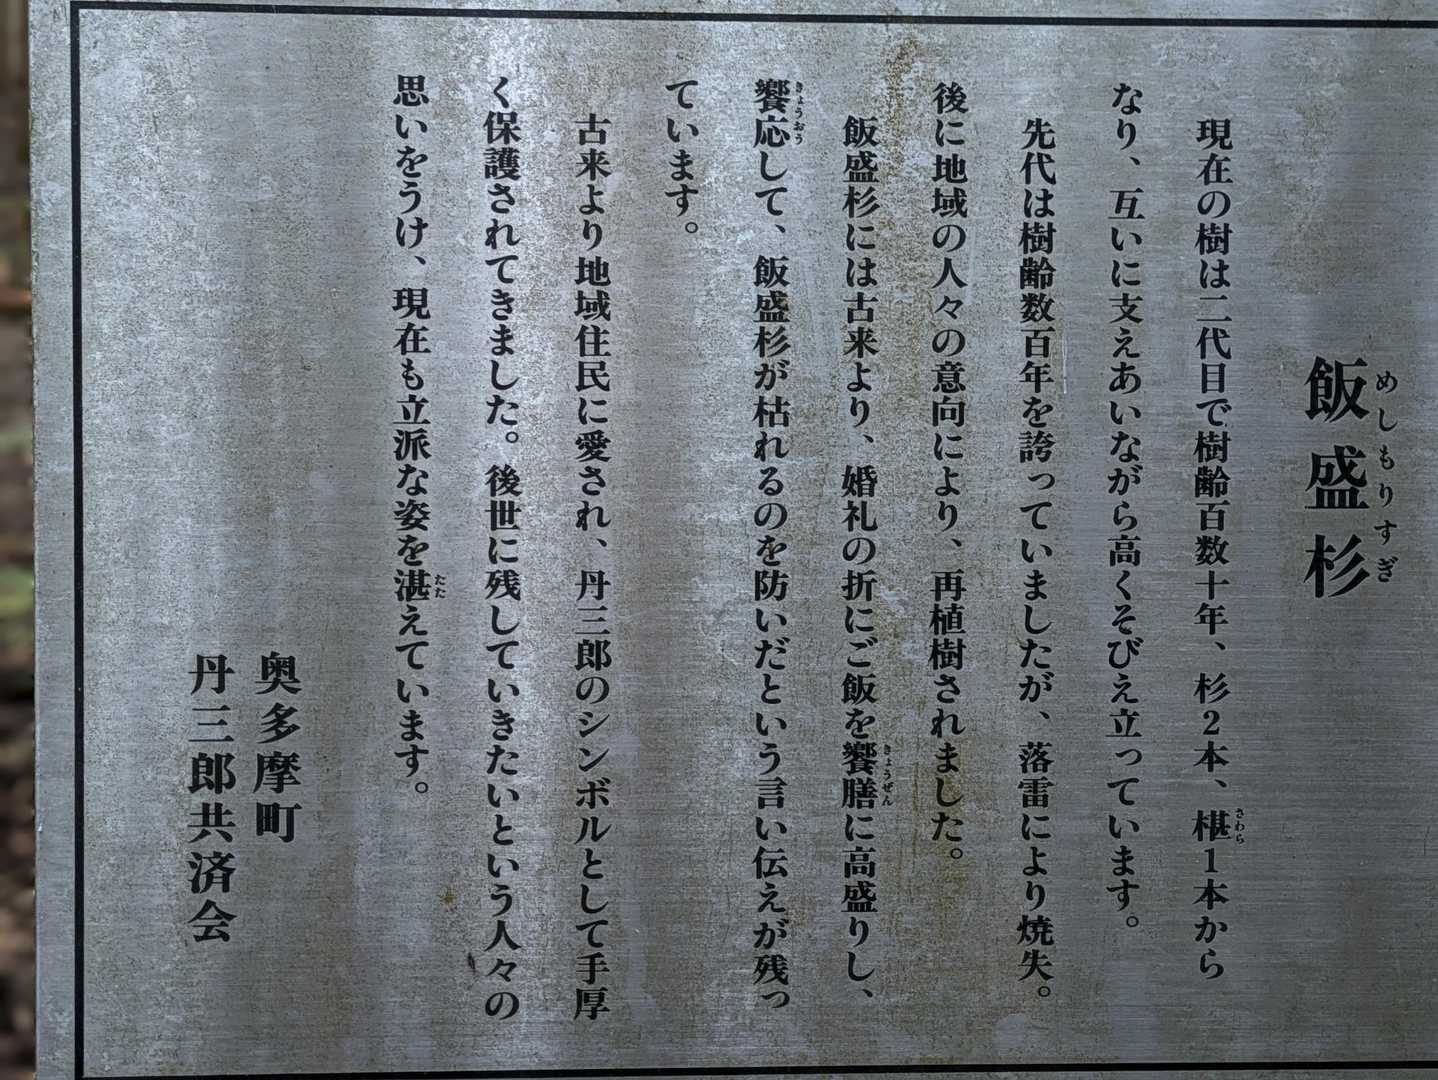 飯盛杉
めしもりすぎ
現在の樹は二代目で樹齢百数十年、杉2本、椹1本から
さわら
なり、互いに支えあいながら高くそびえ立っています。
先代は樹齢数百年を誇っていましたが、落雷により焼失。
後に地域の人々の意向により、再植樹されました。
飯盛杉には古来より、婚礼の折にご飯を饗膳に高盛りし、
きょうぜん
饗応して、飯盛杉が枯れるのを防いだという言い伝えが残っ
きょうおう
ています。
古来より地域住民に愛され、丹三郎のシンボルとして手厚
く保護されてきました。後世に残していきたいという人々の
思いをうけ、現在も立派な姿を湛えています。
たた
奥多摩町
丹三郎共済会